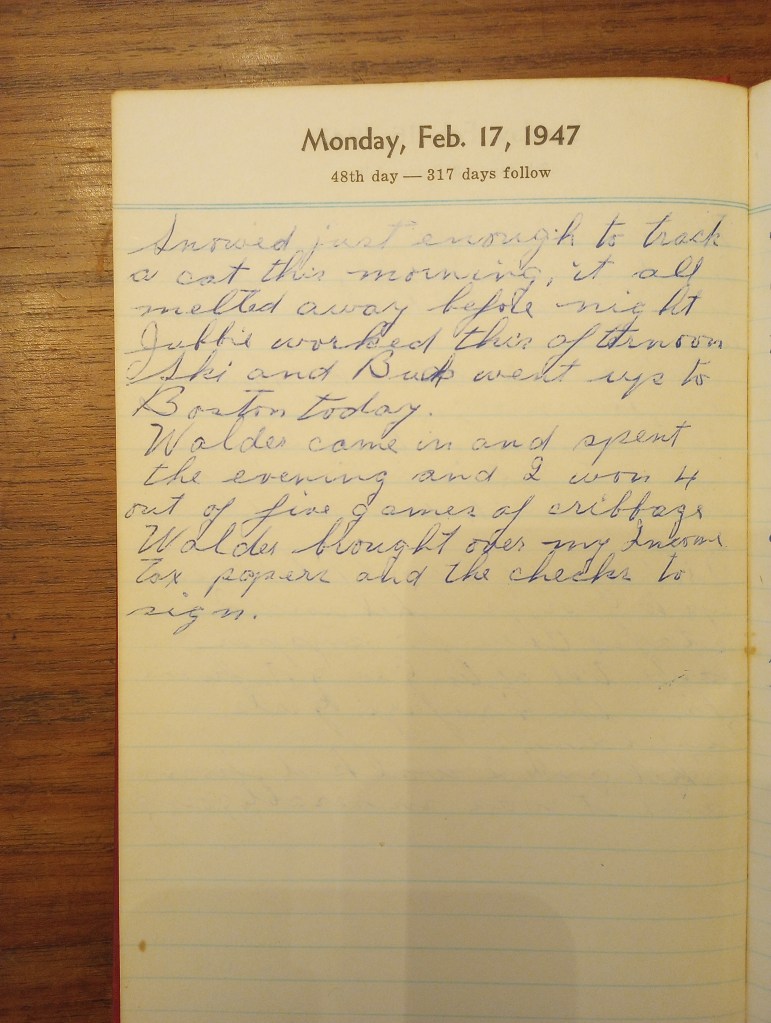 Monday, Feb. 17, 1947
48th day — 317 days follow
Snowed just enough to track
a cat this morning, it all
melted away before night
Jubbie worked this afternoon
Ski and Buck went up to
Boston today.
Walder came in and spent
the evening and I won 4
out of five games of cribbage
Walder brought over my Income
tax papers and the checks to
sign.